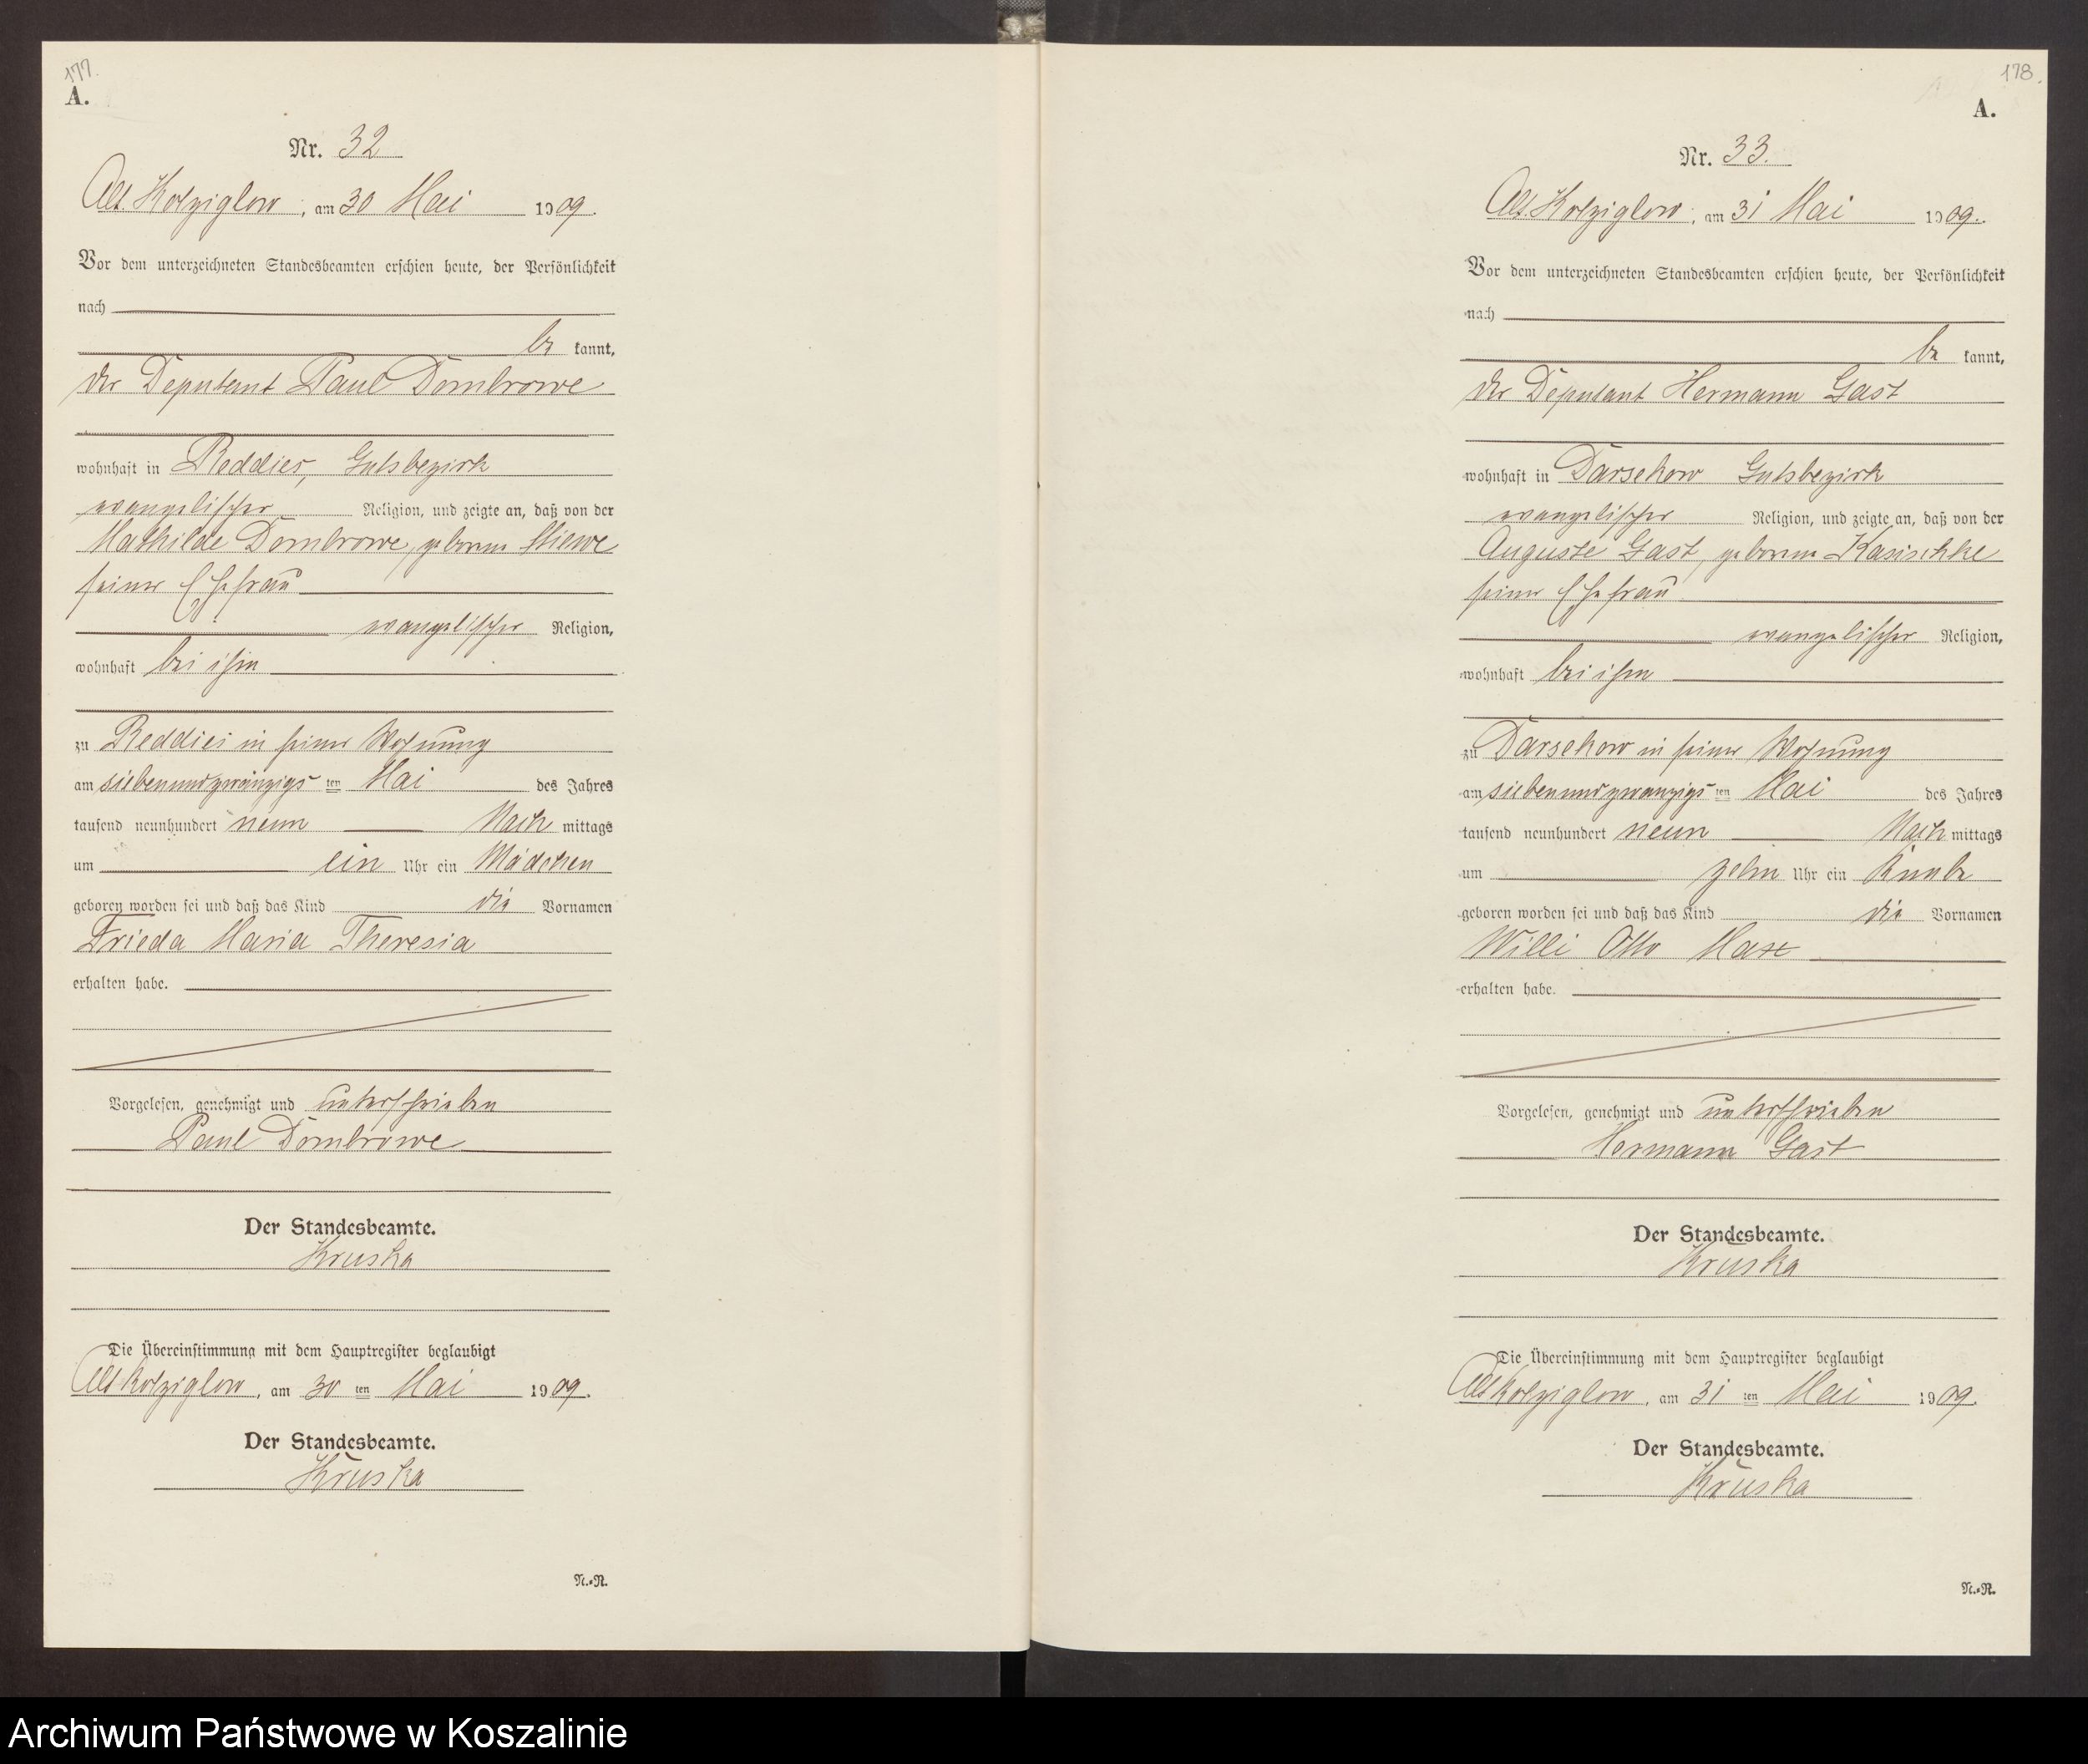 177.
A.
Nr. 32
Alt. Kolziglow, am 30 Mai 1909.
Vor dem unterzeichneten Standesbeamten erschien heute, der Persönlichkeit
nach
be kannt,
der Deputant Paul Dombrowe
wohnhaft in Reddies, Gutsbezirk
evangelischer Religion, und zeigte an, daß von der
Mathilde Dombrowe, geborene Stiewe
seiner Ehefrau
evangelischer Religion,
wohnhaft bei ihm
zu Reddies in seiner Wohnung
am siebenundzwanzigs ten Mai des Jahres
tausend neunhundert neun Nach mittags
um ein Uhr ein Mädchen
geboren worden sei und daß das Kind die Vornamen
Frieda Maria Theresia
erhalten habe.
Vorgelesen, genehmigt und unterschrieben
Paul Dombrowe
Der Standesbeamte.
Kruska
Die Übereinstimmung mit dem Hauptregister beglaubigt
Alt Kolziglow, am 30 ten Mai 1909.
Der Standesbeamte.
Kruska
N.=R.
178.
A.
Nr. 33.
Alt. Kolziglow, am 31 Mai 1909.
Vor dem unterzeichneten Standesbeamten erschien heute, der Persönlichkeit
nach
be kannt,
der Deputant Hermann Gast
wohnhaft in Darsekow Gutsbezirk
evangelischer Religion, und zeigte an, daß von der
Auguste Gast, geborene Kasischke
seiner Ehefrau
evangelischer Religion,
wohnhaft bei ihm
zu Darsekow in seiner Wohnung
am siebenundzwanzigs ten Mai des Jahres
tausend neunhundert neun Nach mittags
um zehn Uhr ein Knabe
geboren worden sei und daß das Kind die Vornamen
Willi Otto Max
erhalten habe.
Vorgelesen, genehmigt und unterschrieben
Hermann Gast
Der Standesbeamte.
Kruska
Die Übereinstimmung mit dem Hauptregister beglaubigt
Alt Kolziglow, am 31 ten Mai 1909.
Der Standesbeamte.
Kruska
N.=R.
Archiwum Państwowe w Koszalinie